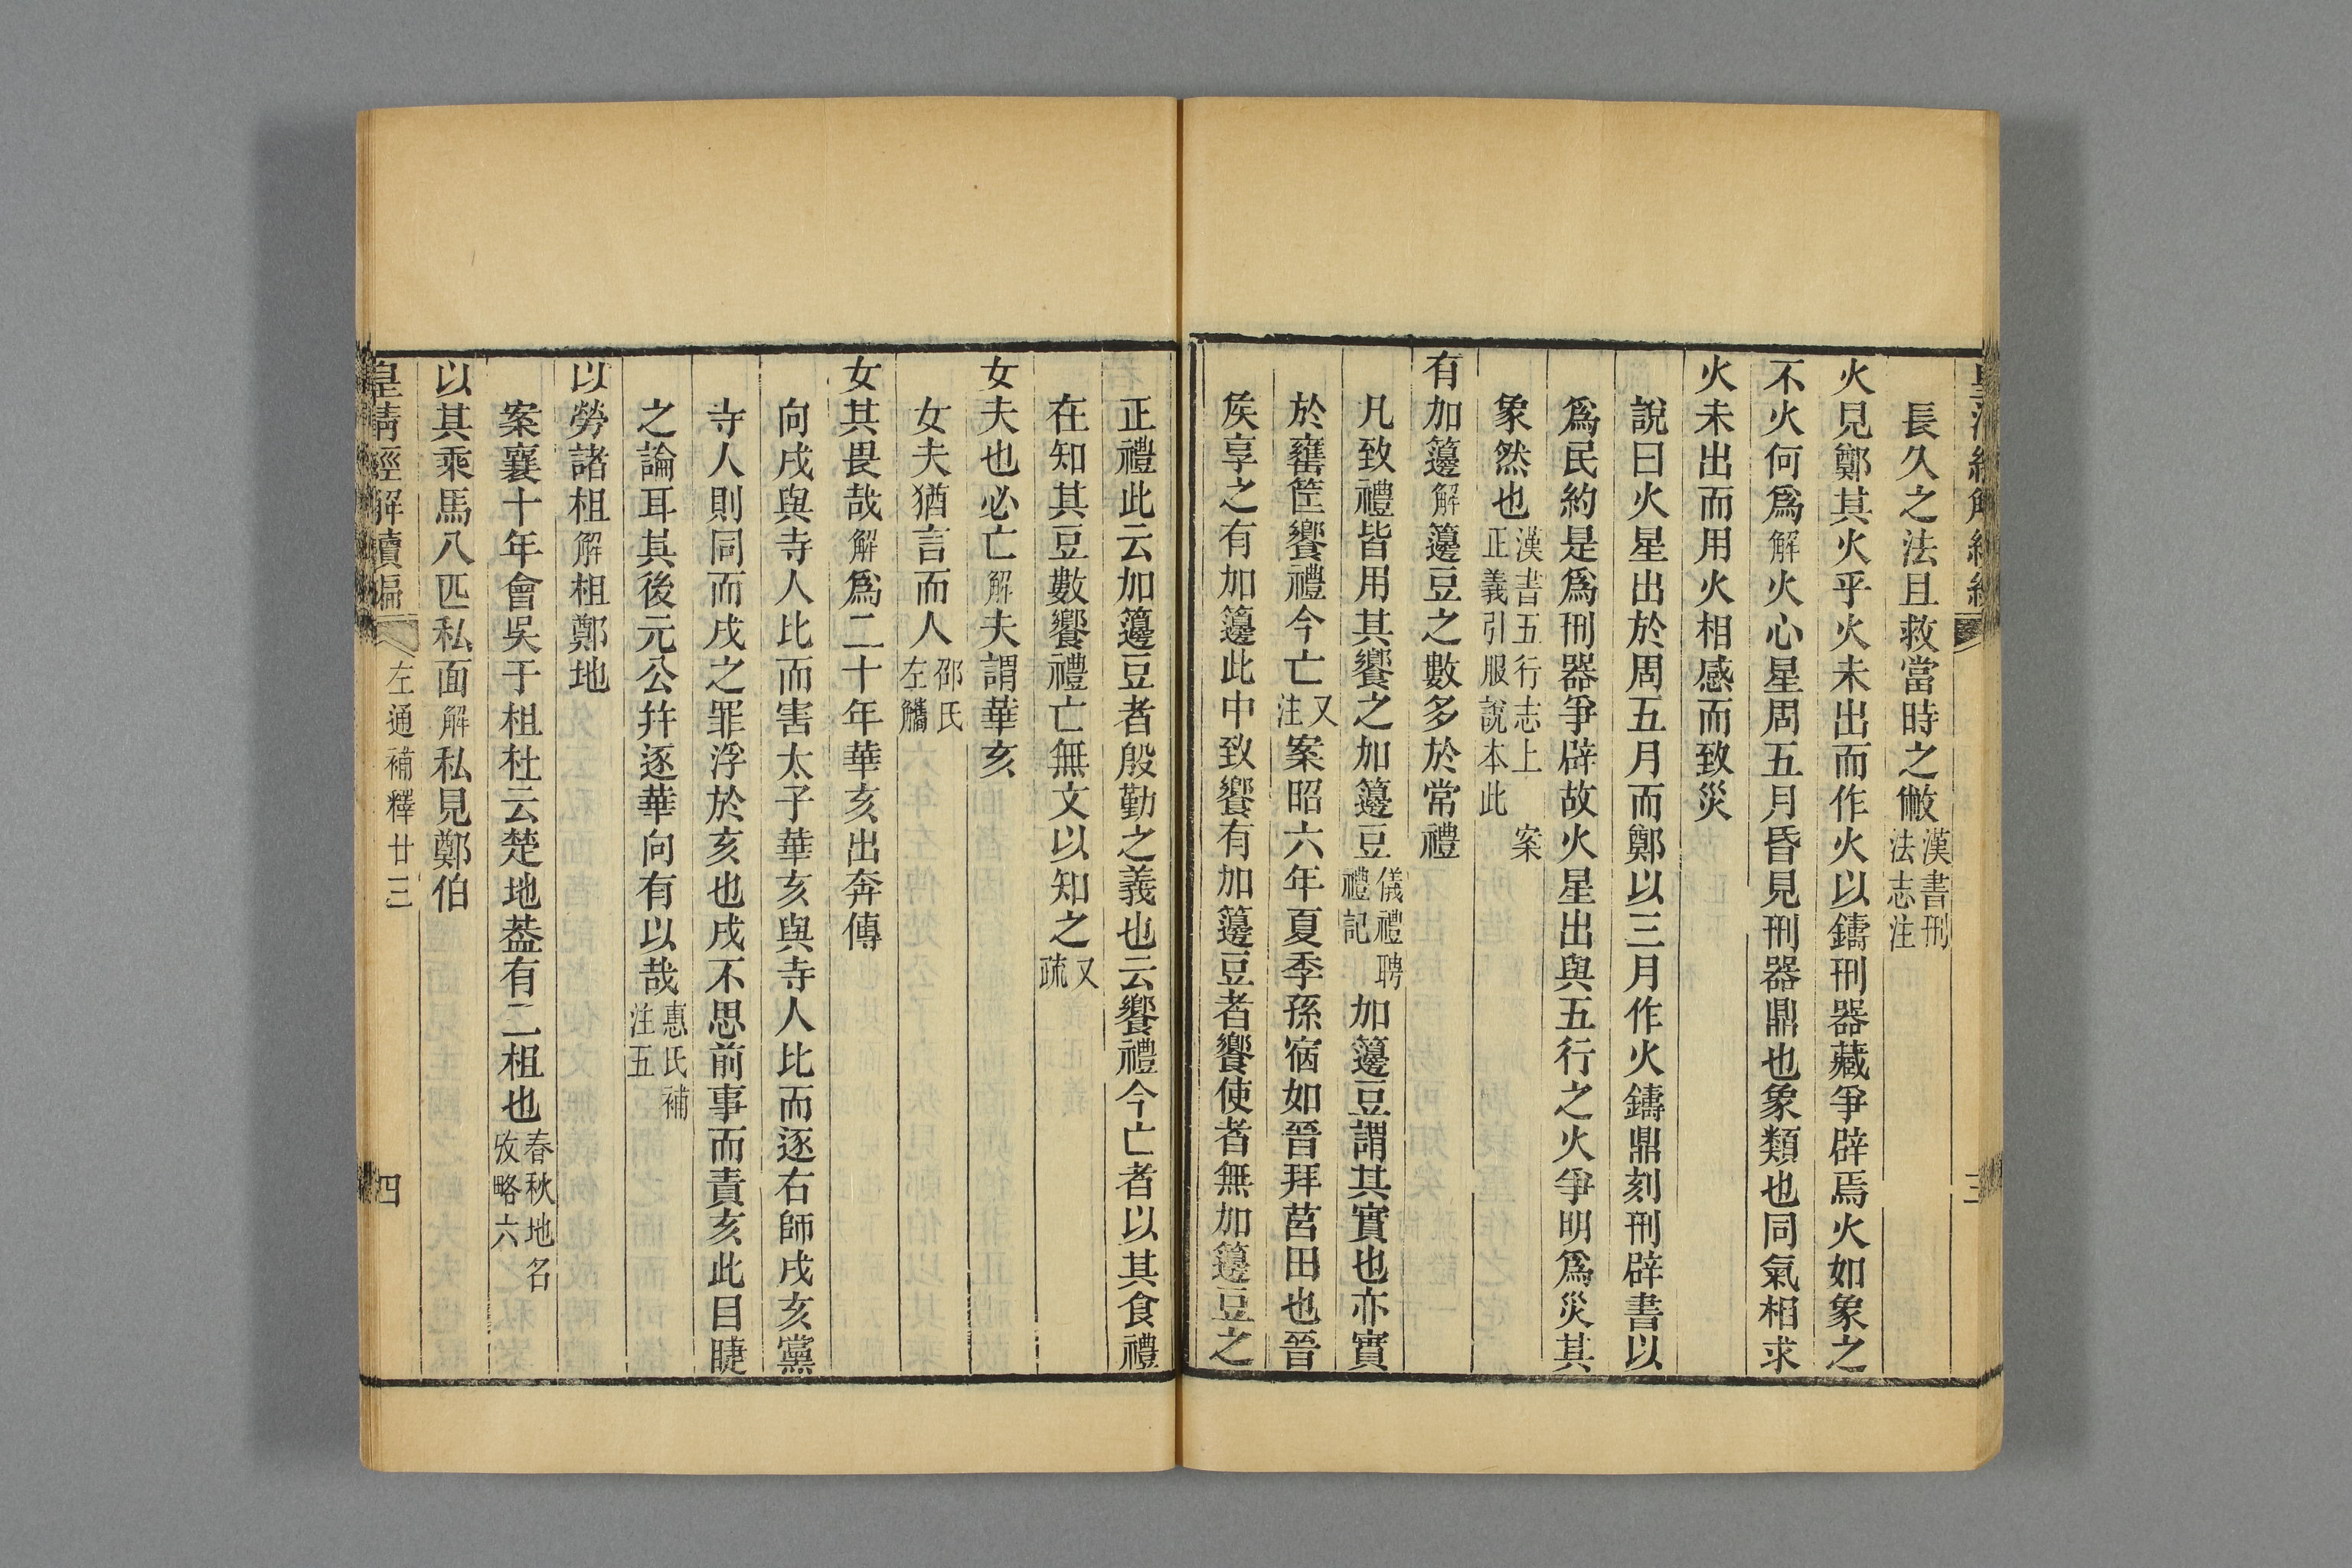 長久之法且救當時之敝漢書刑法志注
火見鄭其火乎火未出而作火以鑄刑器藏爭辟焉火如象之
不火何爲解火心星周五月昏見刑器鼎也象類也同氣相求
火未出而用火相感而致災
說曰火星出於周五月而鄭以三月作火鑄鼎刻刑辟書以
爲民約是爲刑器爭辟故火星出與五行之火爭明爲災其
象然也漢書五行志上案正義引服說本此
有加籩解籩豆之數多於常禮
凡致禮皆用其饗之加籩豆儀禮聘禮記加籩豆謂其實也亦實
於罋筐饗禮今亡又注案昭六年夏季孫宿如晉拜莒田也晉
矦享之有加籩此中致饗有加籩豆者饗使者無加籩豆之
正禮此云加籩豆者殷勤之義也云饗禮今亡者以其食禮
在知其豆數饗禮亡無文以知之又疏
女夫也必亡解夫謂華亥
女夫猶言而人邵氏左觿
女其畏哉解爲二十年華亥出奔傳
向戌與寺人比而害太子華亥與寺人比而逐右師戌亥黨
寺人則同而戌之罪浮於亥也戌不思前事而責亥此目睫
之論耳其後元公幷逐華向有以哉惠氏補注五
以勞諸柤解柤鄭地
案襄十年會吳于柤杜云楚地葢有二柤也春秋地名攷略六
以其乘馬八匹私面解私見鄭伯
皇清經解續編 左通補釋廿三 四